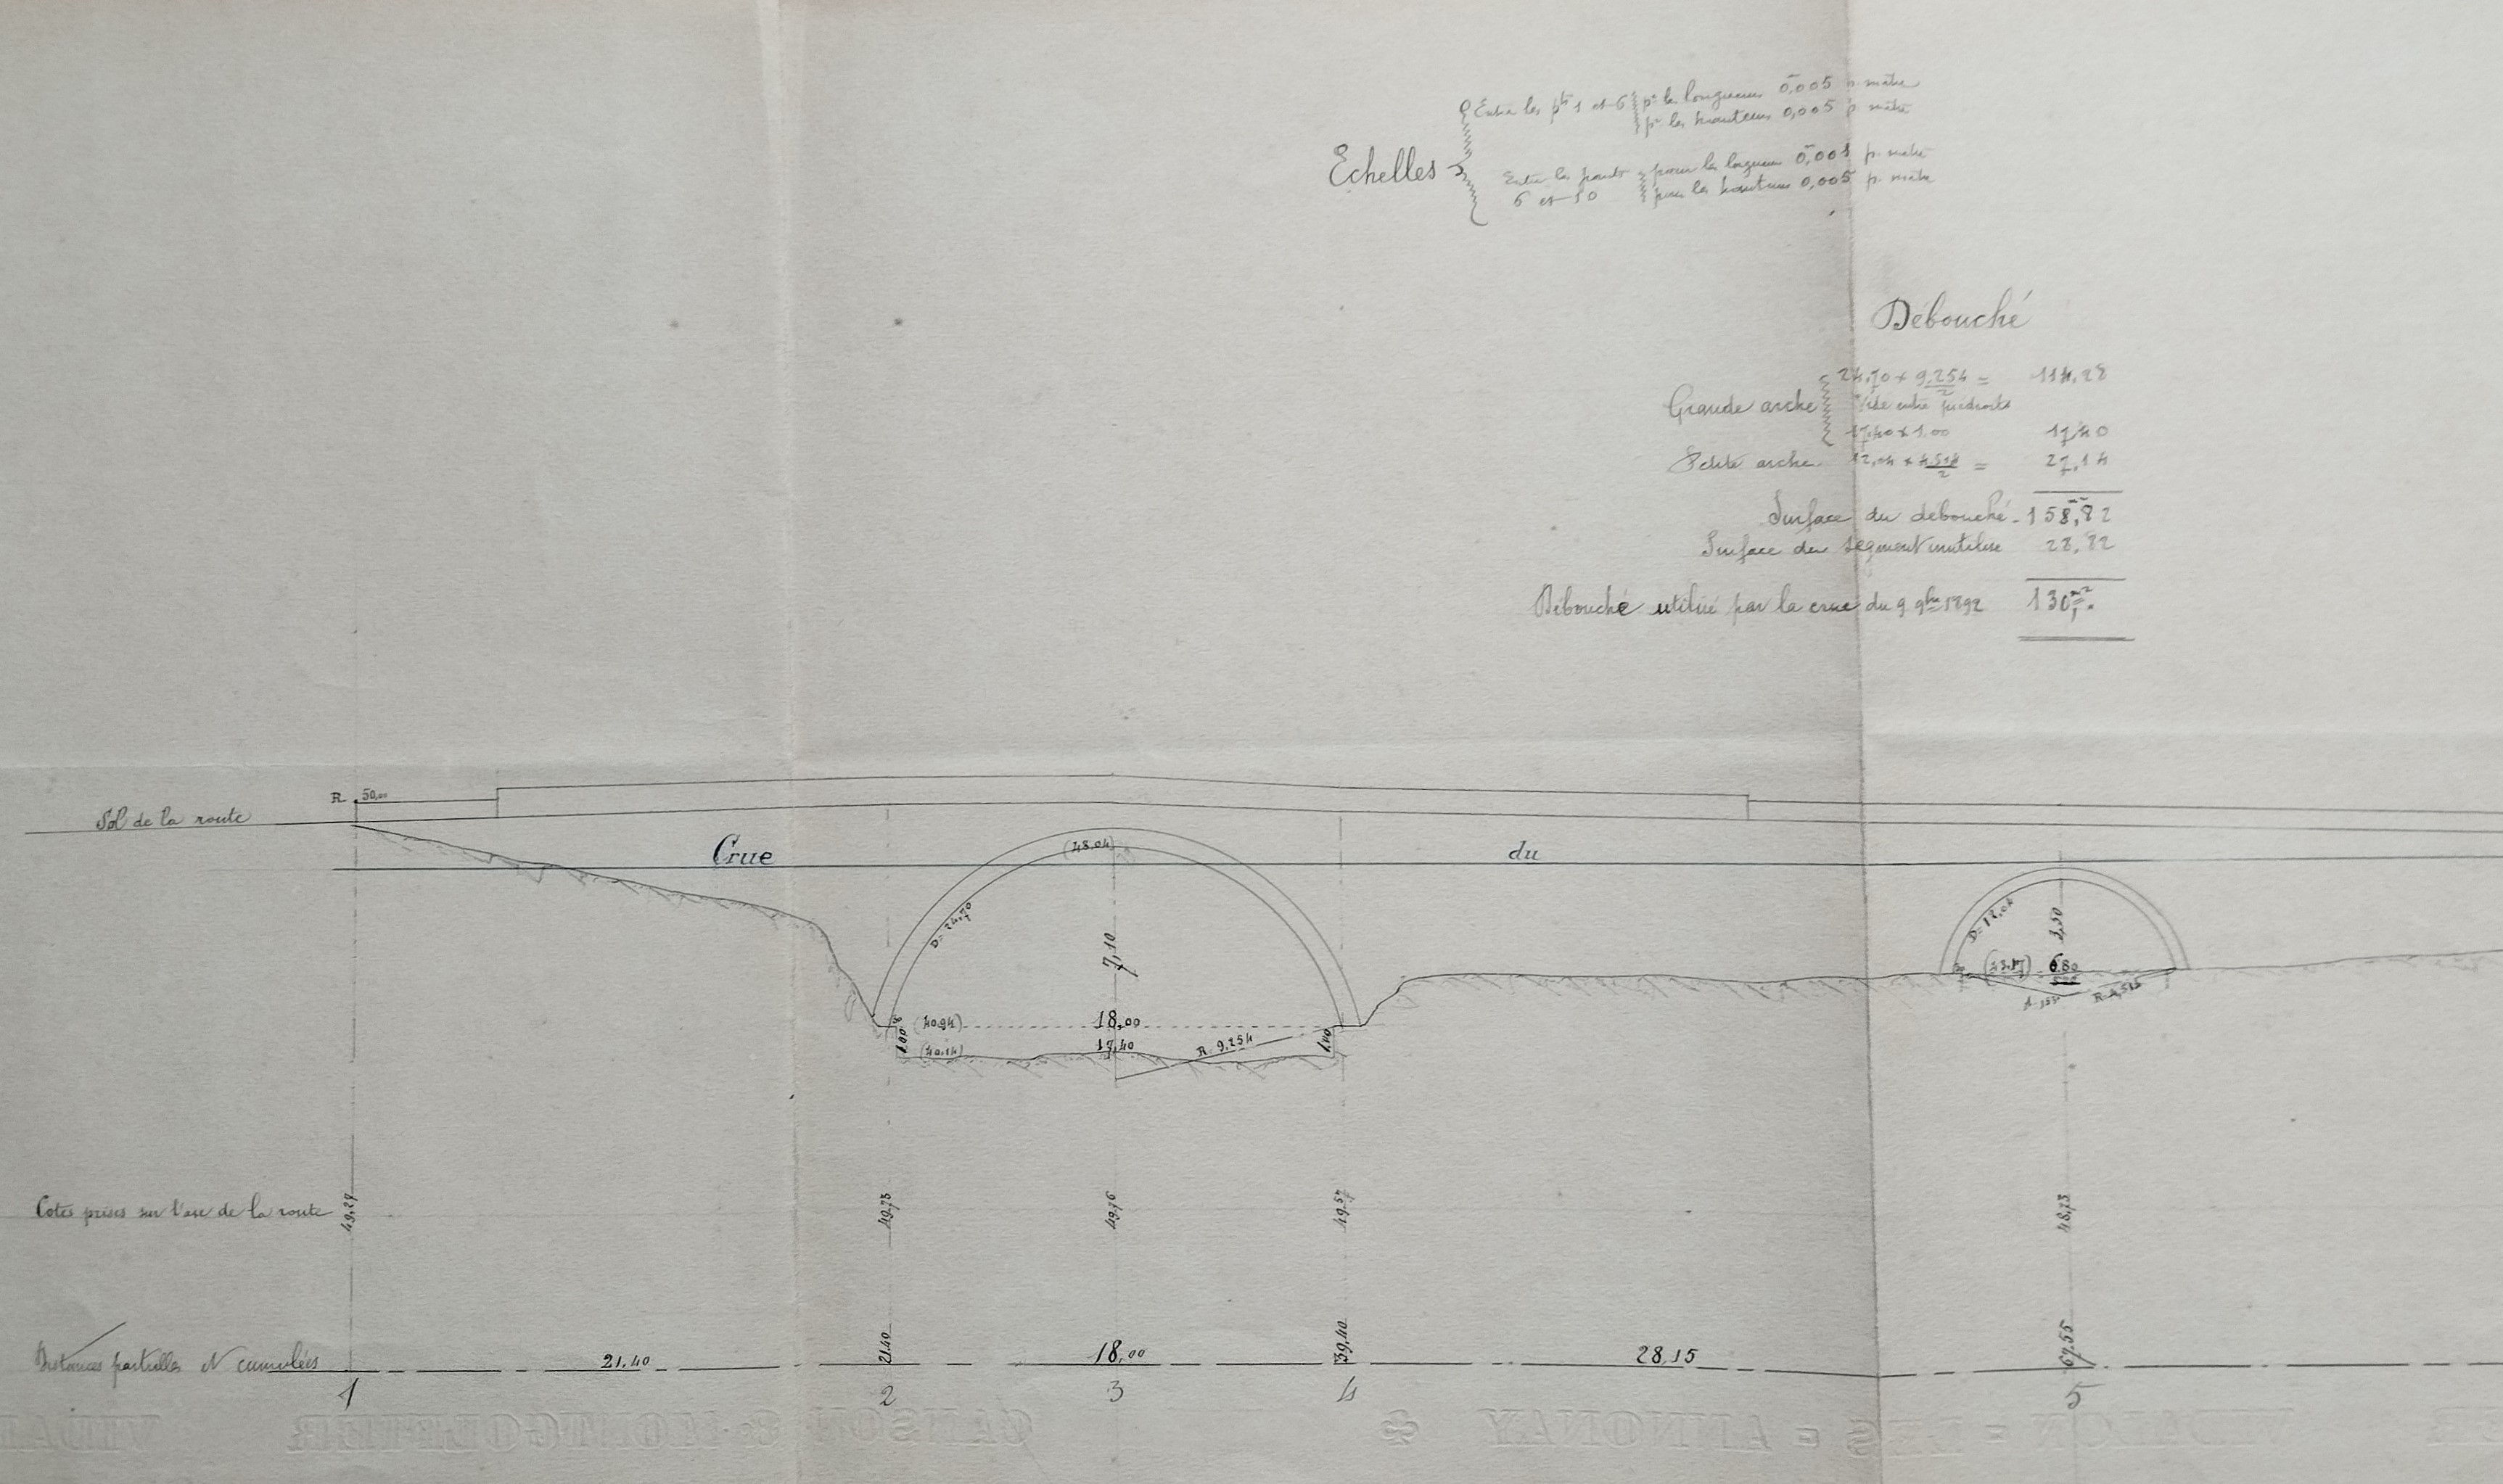 Entre les pts 1 et 6 pr les longueurs 0,005 p. mètre
pr les hauteurs 0,005 p. mètre
Echelles
Entre les points 6 et 10 pour les longueurs 0,001 p. mètre
pour les hauteurs 0,005 p. mètre
Débouché
Grande arche 24,70 × 9,254/2 = 114,28
Vide entre piédroits
17,40 × 1,00 17,40
Petite arche 12,04 × 4,514/2 = 27,14
Surface du débouché 158,82
Surface du segment inutilisé 28,82
Débouché utilisé par la crue du 9 9bre 1892 130m2,
R. 50,00
Sol de la route
Crue du
(48,04)
D= 24,70
7,10
(40,94) 18,00
1,00
(40,14) 17,40
R 9,254
1,00
D= 12,04
3,50
6,80
R 4,515
Cotes prises sur l'axe de la route 49,29 49,73 49,76 49,57 48,73
Distances partielles et cumulées 21,40 21,40 18,00 39,40 28,15 67,55
1 2 3 4 5
CANSON & MONTGOLFIER
VIDALON-LES-ANNONAY